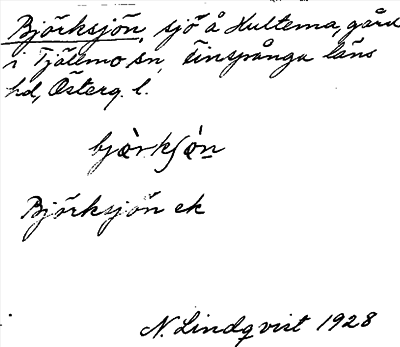 Björksjön, sjö å Hultema, gård
i Tjällmo sn, Finspånga läns
hd, Österg. l.
Björksjön ek
N. Lindqvist 1928